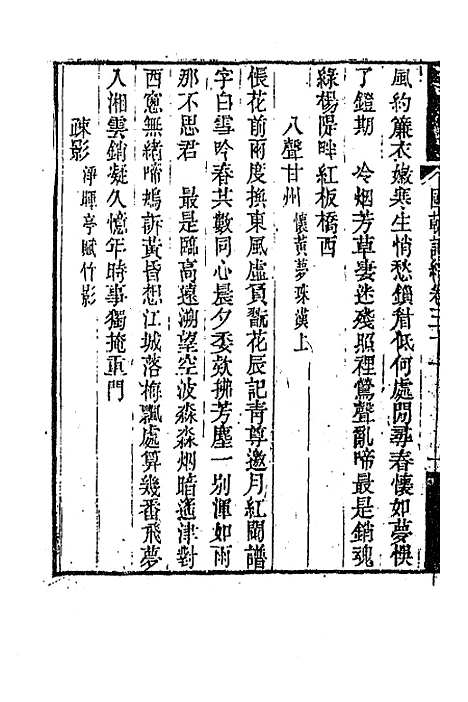 風約簾衣嫩寒生悄愁鎖眉低何處閒尋春懷如夢悞
了鐙期　冷烟芳草凄迷殘照裡鶯聲亂啼最是銷魂
綠楊隄畔紅板橋西
八聲甘州　懷黃夢珠漢上
悵花前兩度換東風虛負翫花辰記青尊邀月紅閨譜
字白雪吟春共數同心晨夕委欬拂芳塵一別渾如雨
那不思君　最是臨高遠溯望空波淼淼烟暗遙津對
西窻無緒啼鴂訴黃昏想江城落梅飄處算幾番飛夢
入湘雲銷凝久憶年時事獨掩重門
疎影　淨暉亭賦竹影
國朝詞綜卷三十